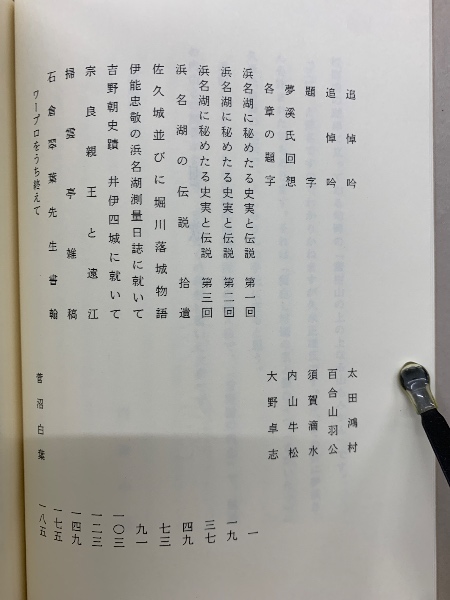 追悼吟　太田鴻村
追悼吟　百合山羽公
題字　須賀滴水
夢溪氏回想　内山牛松
各章の題字　大野卓志
浜名湖に秘めたる史実と伝説　第一回　一
浜名湖に秘めたる史実と伝説　第二回　一九
浜名湖に秘めたる史実と伝説　第三回　三七
浜名湖の伝説　拾遺　四九
佐久城並びに堀川落城物語　七三
伊能忠敬の浜名湖測量日誌に就いて　九一
吉野朝史蹟　井伊四城に就いて　一〇三
宗良親王と遠江　一二三
掃雲亭雑稿　一四九
石倉翠葉先生書翰　一七五
ワープロをうち終えて　菅沼白葉　一八五